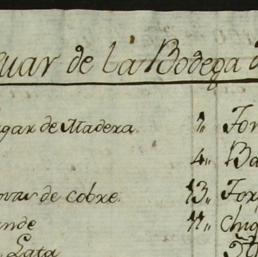 uar de la Bodega d
gar de Madera. 1,, For
4,, Ba
de cobre. 13,, For
nde 11,, Chiq
Lata